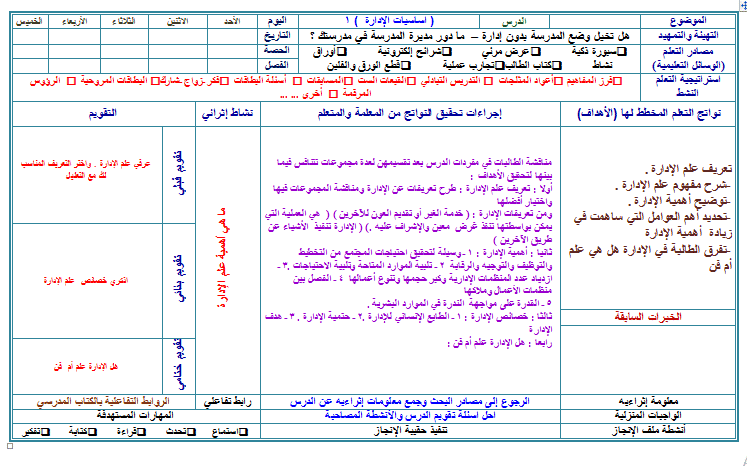 الموضوع
الدرس
( أساسيات الإدارة ) ١
اليوم
الأحد
الاثنين
الثلاثاء
الأربعاء
الخميس
التهيئة والتمهيد
هل تخيل وضع المدرسة بدون إدارة – ما دور مديرة المدرسة في مدرستك ؟
التاريخ
مصادر التعلم
سبورة ذكية
عرض مرئي
شرائح إلكترونية
أوراق
الحصة
(الوسائل التعليمية)
نشاط
كتاب الطالب
تجارب عملية
قطع الورق والفلين
الفصل
استراتيجية التعلم
فرز المفاهيم
أعواد المثلجات
التدريس التبادلي
القبعات الست
المسابقات
أسئلة البطاقات
فكر-زواج-شارك
البطاقات المروحية
الرؤوس
النشط
المرقمة
أخرى ... ...
نواتج التعلم المخطط لها (الأهداف)
إجراءات تحقيق النواتج من المعلمة والمتعلم
نشاط إثرائي
التقويم
تعريف علم الإدارة .
-شرح مفهوم علم الإدارة .
-توضيح أهمية الإدارة .
-تحديد أهم العوامل التي ساهمت في
زيادة أهمية الإدارة
-تفرق الطالبة في الإدارة هل هي علم
أم فن
الخبرات السابقة
مناقشة الطالبات في مفردات الدرس بعد تقسيمهن لعدة مجموعات تتنافس فيما
بينها لتحقيق الأهداف :
أولا : تعريف علم الإدارة : طرح تعريفات عن الإدارة ومناقشة المجموعات فيها
واختيار أفضلها
ومن تعريفات الإدارة : ( خدمة الغير أو تقديم العون للآخرين ) ( هي العملية التي
يمكن بواسطتها تنفذ غرض معين والإشراف عليه .) (الإدارة تنفيذ الأشياء عن
طريق الآخرين )
ثانيا : أهمية الإدارة : ١ -وسيلة لتحقيق احتياجات المجتمع من التخطيط
والتوظيف والتوجيه والرقابة ٢ - تلبية الموارد المتاحة وتلبية الاحتياجات .٣ -
ازدياد عدد المنظمات الإدارية وكبر حجمها وتنوع أعمالها ٤ - الفصل بين
منظمات الأعمال وملاكها
٥ - القدرة على مواجهة الندرة في الموارد البشرية .
ثالثا : خصائص الإدارة : ١ - الطابع الإنساني للإدارة .٢ - حتمية الإدارة . ٣ - هدف
الإدارة
رابعا : هل الإدارة علم أم فن :
ما هي أهمية علم الإدارة
تقويم قبلي
عرفي علم الإدارة . واختر التعريف المناسب
لك مع التعليل
تقويم بنائي
اذكري خصائص علم الإدارة
تقويم ختامي
هل الإدارة علم أم فن
معلومة إثرائيه
الرجوع إلى مصادر البحث وجمع معلومات إثراءيه عن الدرس
رابط تفاعلي
الروابط التفاعلية بالكتاب المدرسي
الواجبات المنزلية
احل اسئلة تقويم الدرس والأنشطة المصاحبة
المهارات المستهدفة
أنشطة ملف الإنجاز
تنفيذ حقيبة الإنجاز
استماع
تحدث
قراءة
كتابة
تفكير